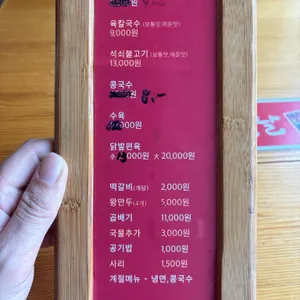 육칼국수 (보통맛,매운맛)
9,000원
석쇠불고기 (보통맛,매운맛)
13,000원
콩국수
원 8.-
수육
000원
닭발편육
小 000원 大 20,000원
떡갈비(개당) 2,000원
왕만두(4개) 5,000원
곱배기 11,000원
국물추가 3,000원
공기밥 1,000원
사리 1,500원
계절메뉴 - 냉면,콩국수